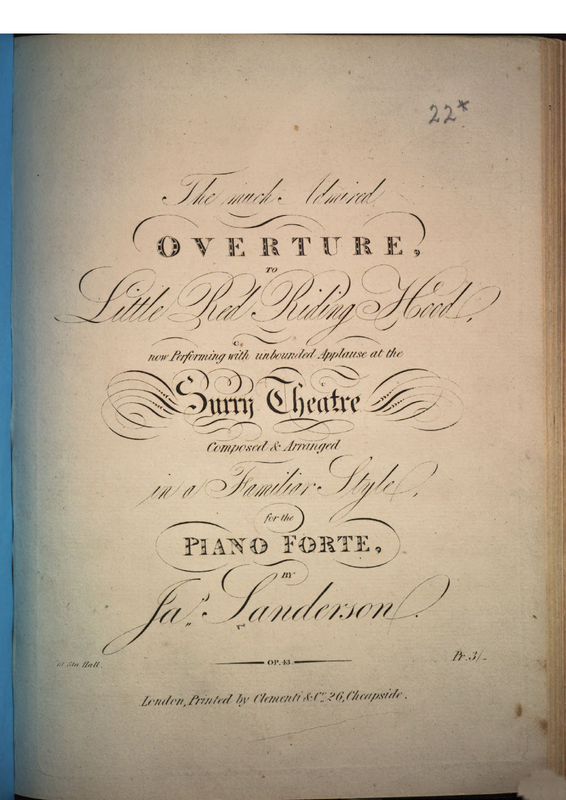 22*
The much Admired
OVERTURE,
TO
Little Red Riding Hood,
now Performing with unbounded Applause at the
Surry Theatre
Composed & Arranged
in a Familiar Style,
for the
PIANO FORTE,
BY
Jas. Sanderson.
Hall.
OP. 43.
Pr. 3/-
London, Printed by Clementi & Co. 26, Cheapside.